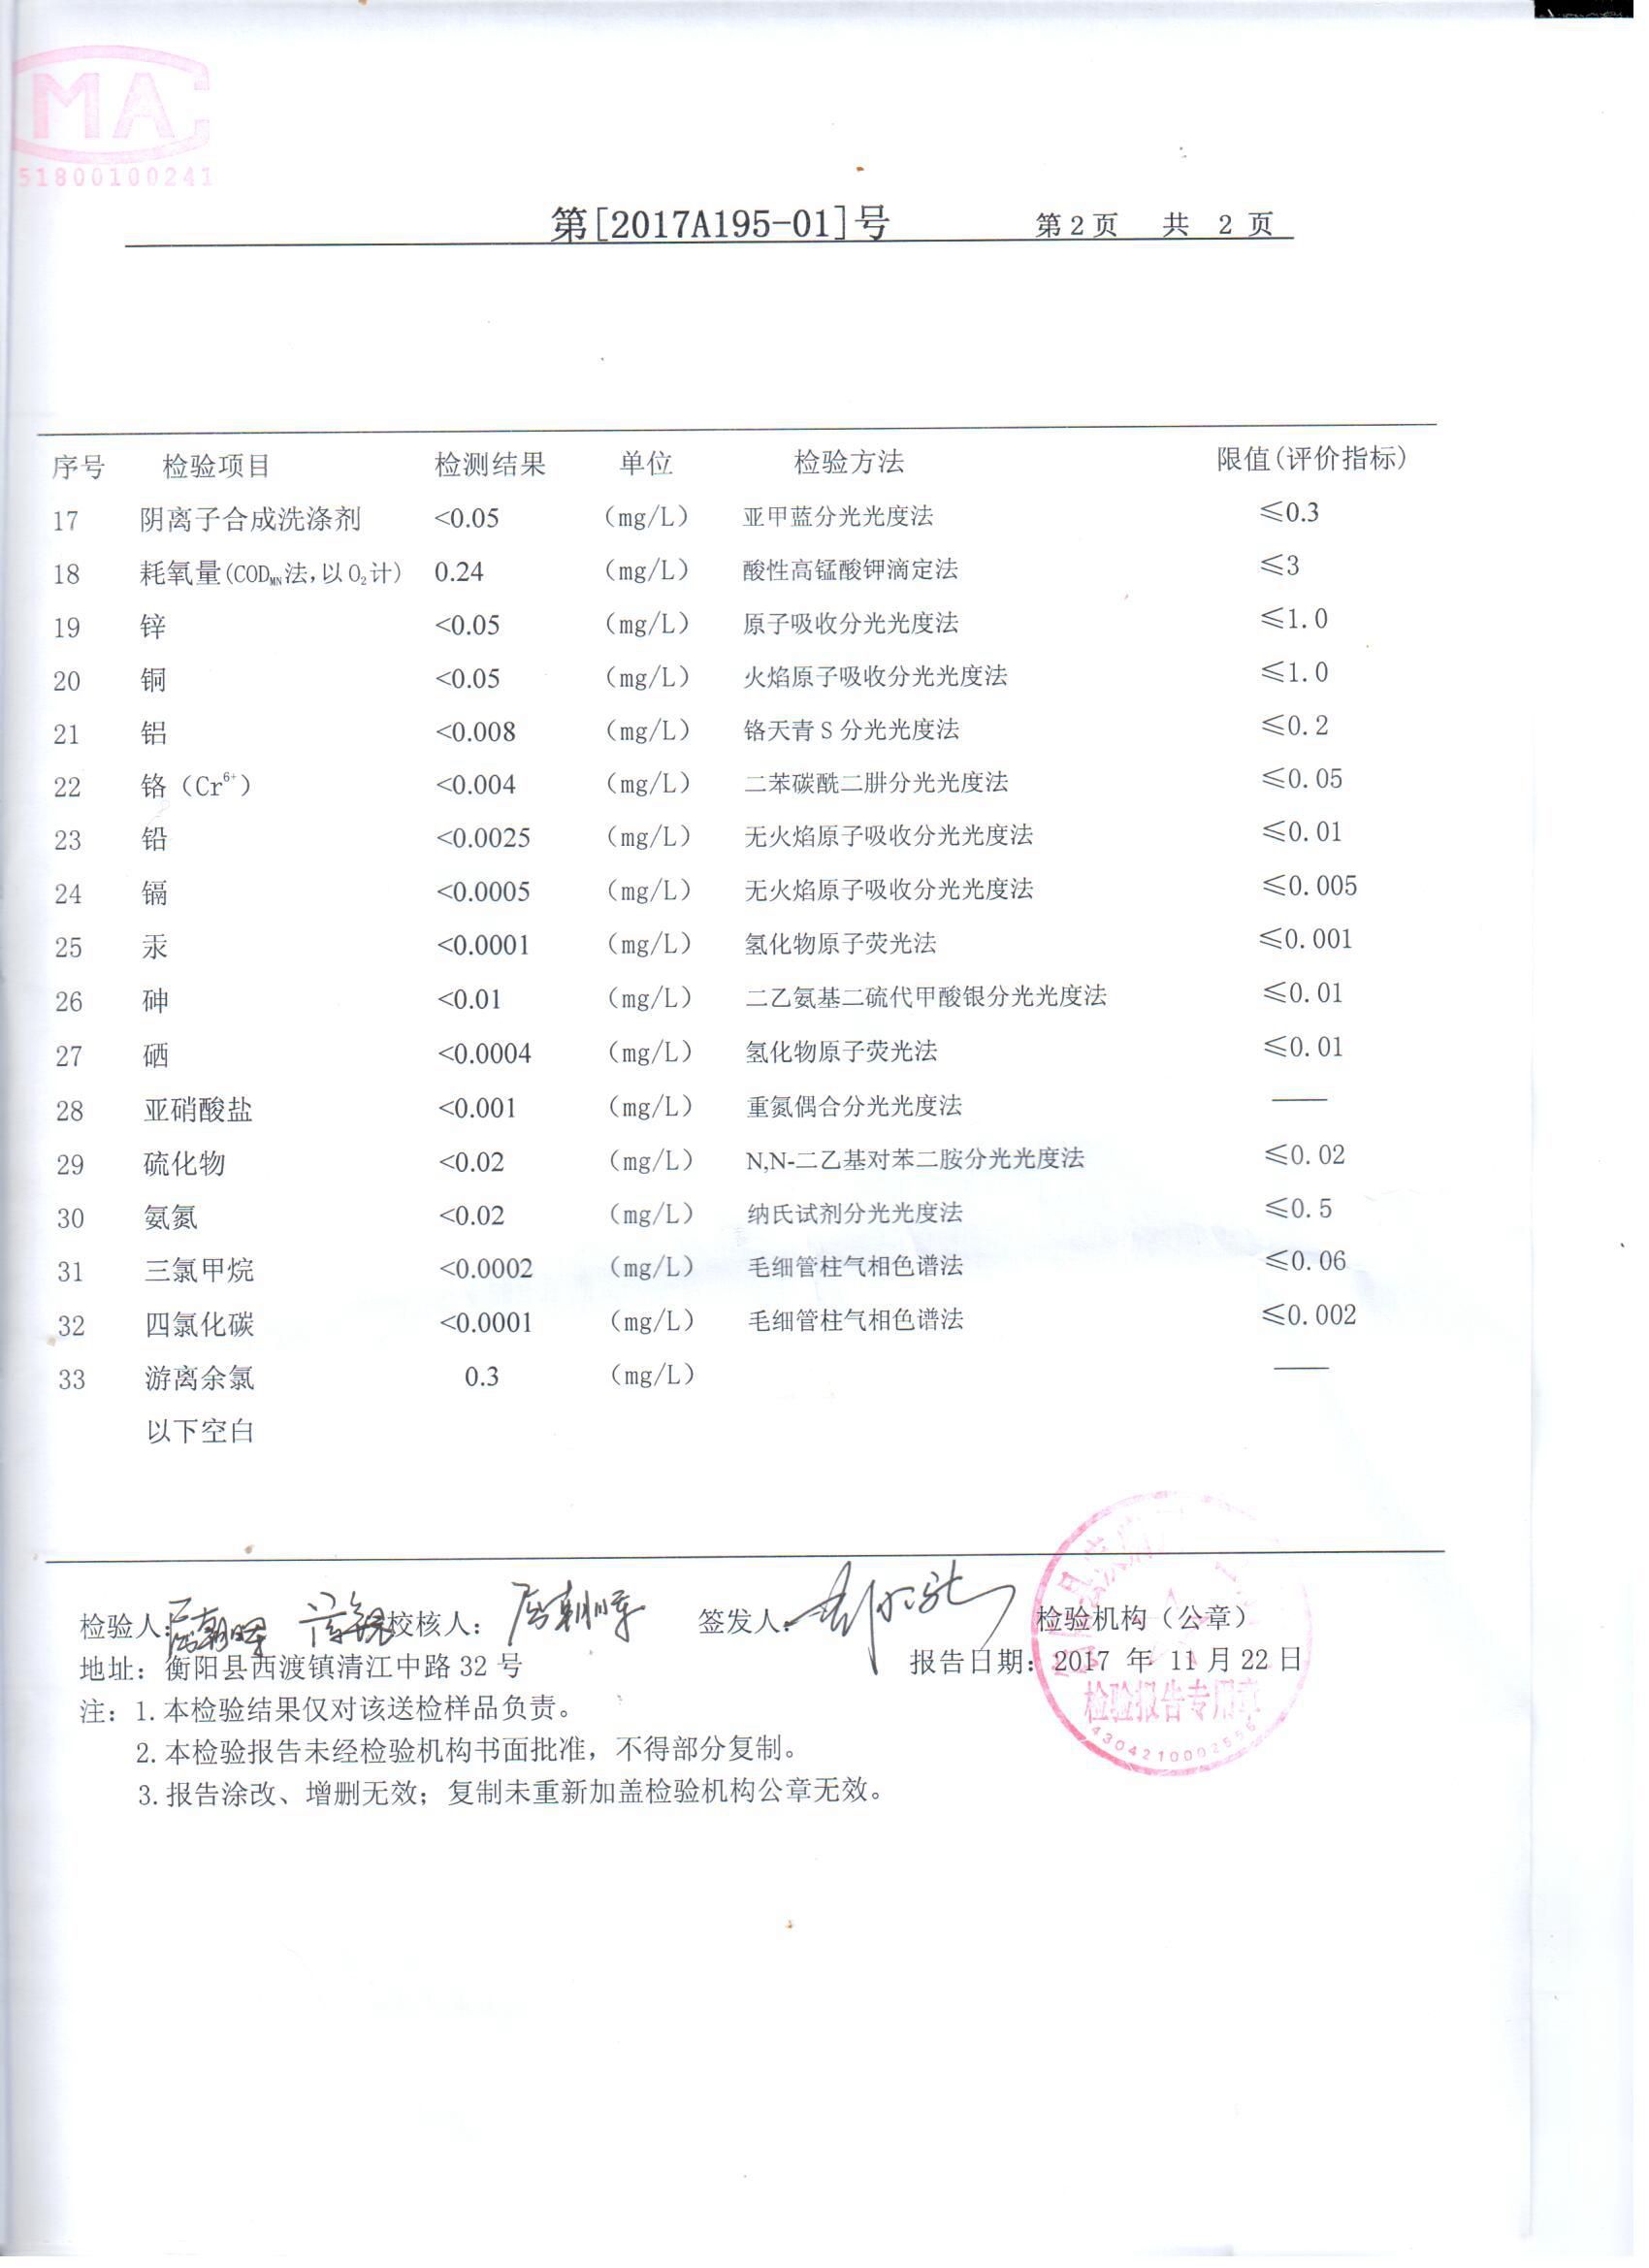 MA
51800100241
第[2017A195-01]号 第2页 共 2 页
序号 检验项目 检测结果 单位 检验方法 限值(评价指标)
17 阴离子合成洗涤剂 <0.05 (mg/L) 亚甲蓝分光光度法 ≤0.3
18 耗氧量(CODMN法,以O2计) 0.24 (mg/L) 酸性高锰酸钾滴定法 ≤3
19 锌 <0.05 (mg/L) 原子吸收分光光度法 ≤1.0
20 铜 <0.05 (mg/L) 火焰原子吸收分光光度法 ≤1.0
21 铝 <0.008 (mg/L) 铬天青S分光光度法 ≤0.2
22 铬（Cr6+） <0.004 (mg/L) 二苯碳酰二肼分光光度法 ≤0.05
23 铅 <0.0025 (mg/L) 无火焰原子吸收分光光度法 ≤0.01
24 镉 <0.0005 (mg/L) 无火焰原子吸收分光光度法 ≤0.005
25 汞 <0.0001 (mg/L) 氢化物原子荧光法 ≤0.001
26 砷 <0.01 (mg/L) 二乙氨基二硫代甲酸银分光光度法 ≤0.01
27 硒 <0.0004 (mg/L) 氢化物原子荧光法 ≤0.01
28 亚硝酸盐 <0.001 (mg/L) 重氮偶合分光光度法 ——
29 硫化物 <0.02 (mg/L) N,N-二乙基对苯二胺分光光度法 ≤0.02
30 氨氮 <0.02 (mg/L) 纳氏试剂分光光度法 ≤0.5
31 三氯甲烷 <0.0002 (mg/L) 毛细管柱气相色谱法 ≤0.06
32 四氯化碳 <0.0001 (mg/L) 毛细管柱气相色谱法 ≤0.002
33 游离余氯 0.3 (mg/L) ——
以下空白
检验人: 校核人: 签发人: 检验机构（公章）
地址：衡阳县西渡镇清江中路 32 号 报告日期：2017 年 11 月 22 日
检验报告专用章
注：1.本检验结果仅对该送检样品负责。
2.本检验报告未经检验机构书面批准，不得部分复制。
3.报告涂改、增删无效；复制未重新加盖检验机构公章无效。